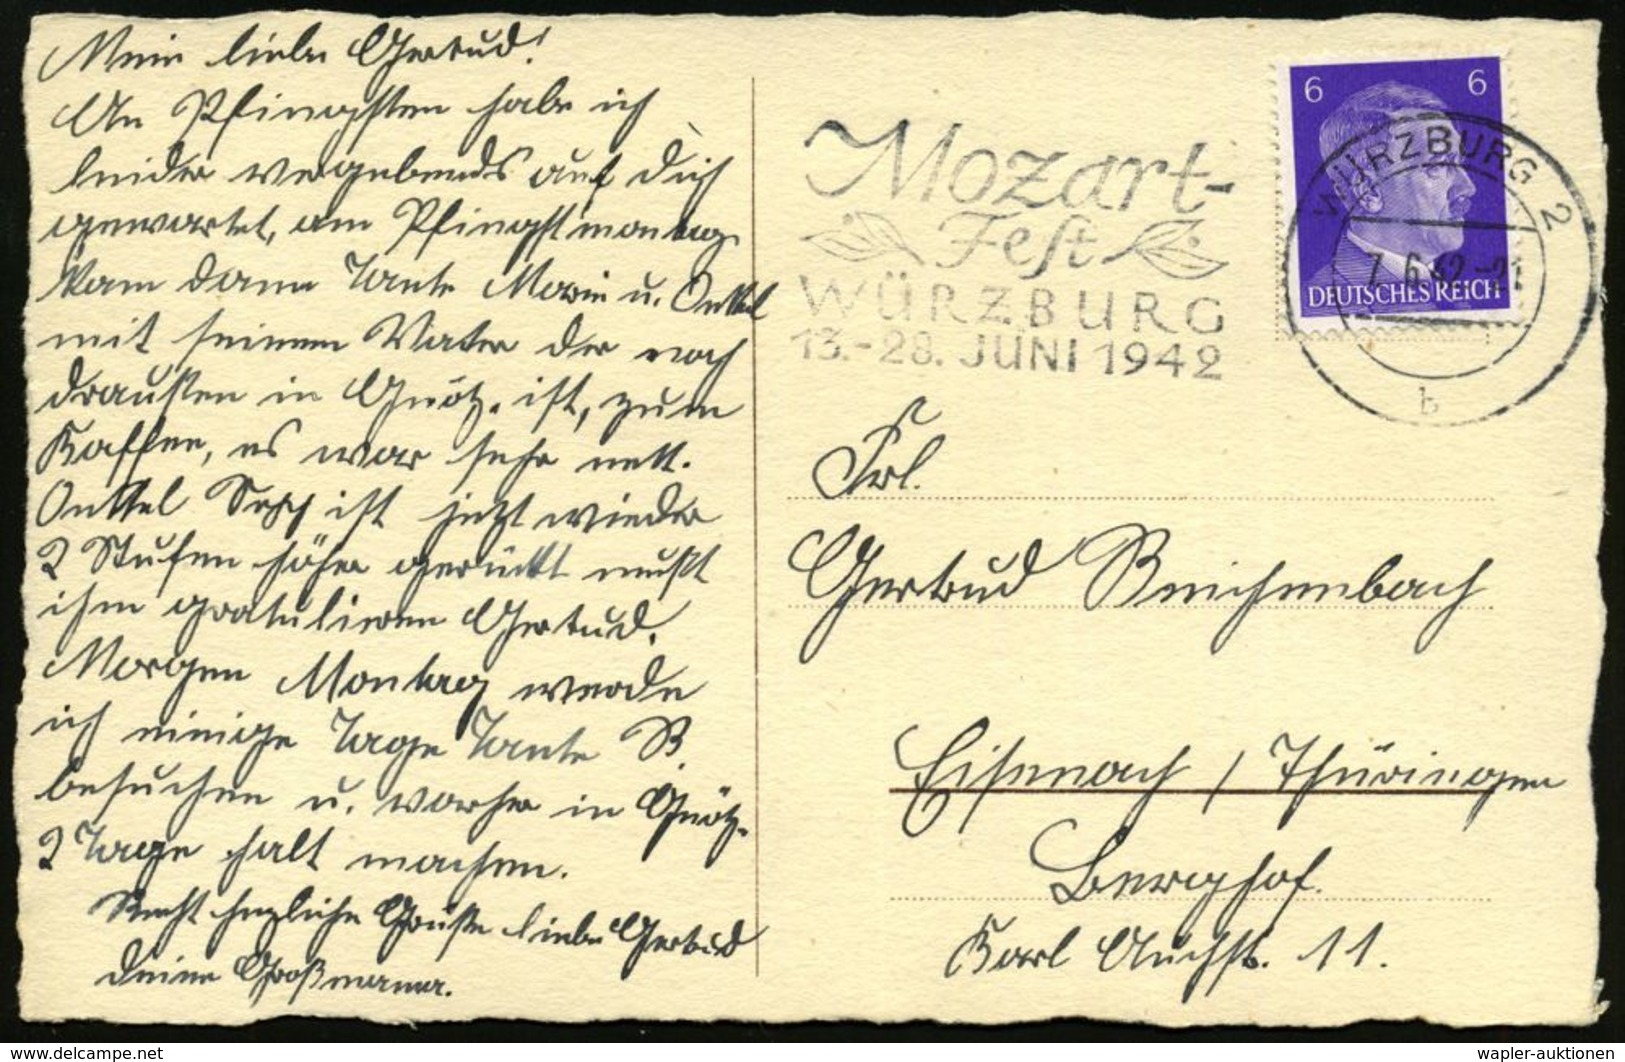 Mein liebe Gertrud!
An Pfingsten habe ich
leider vergebends auf dich
gewartet, am Pfingstmontag
kam dann Tante Marie u. Onkel
mit seinem Vater der noch
draußen in Gnötz. ist, zum
Kaffee, es war sehr nett.
Onkel Sepp ist jetzt wieder
2 Stufen höher gerückt mußt
ihm gratulieren Gertrud.
Morgen Montag werde
ich einige Tage Tante B.
besuchen u. vorher in Gnötz.
2 Tage halt machen.
Recht herzliche Grüße liebe Gertrud
deine Großmama.
Mozart-
Fest
WÜRZBURG
13.-28. JUNI 1942
6 6
WÜRZBURG 2
7.6.42-21
DEUTSCHES REICH
b
Frl.
Gertrud Reichenbach
Eisenach / Thüringen
Berghof.
Karl 11.
wapler-auktionen